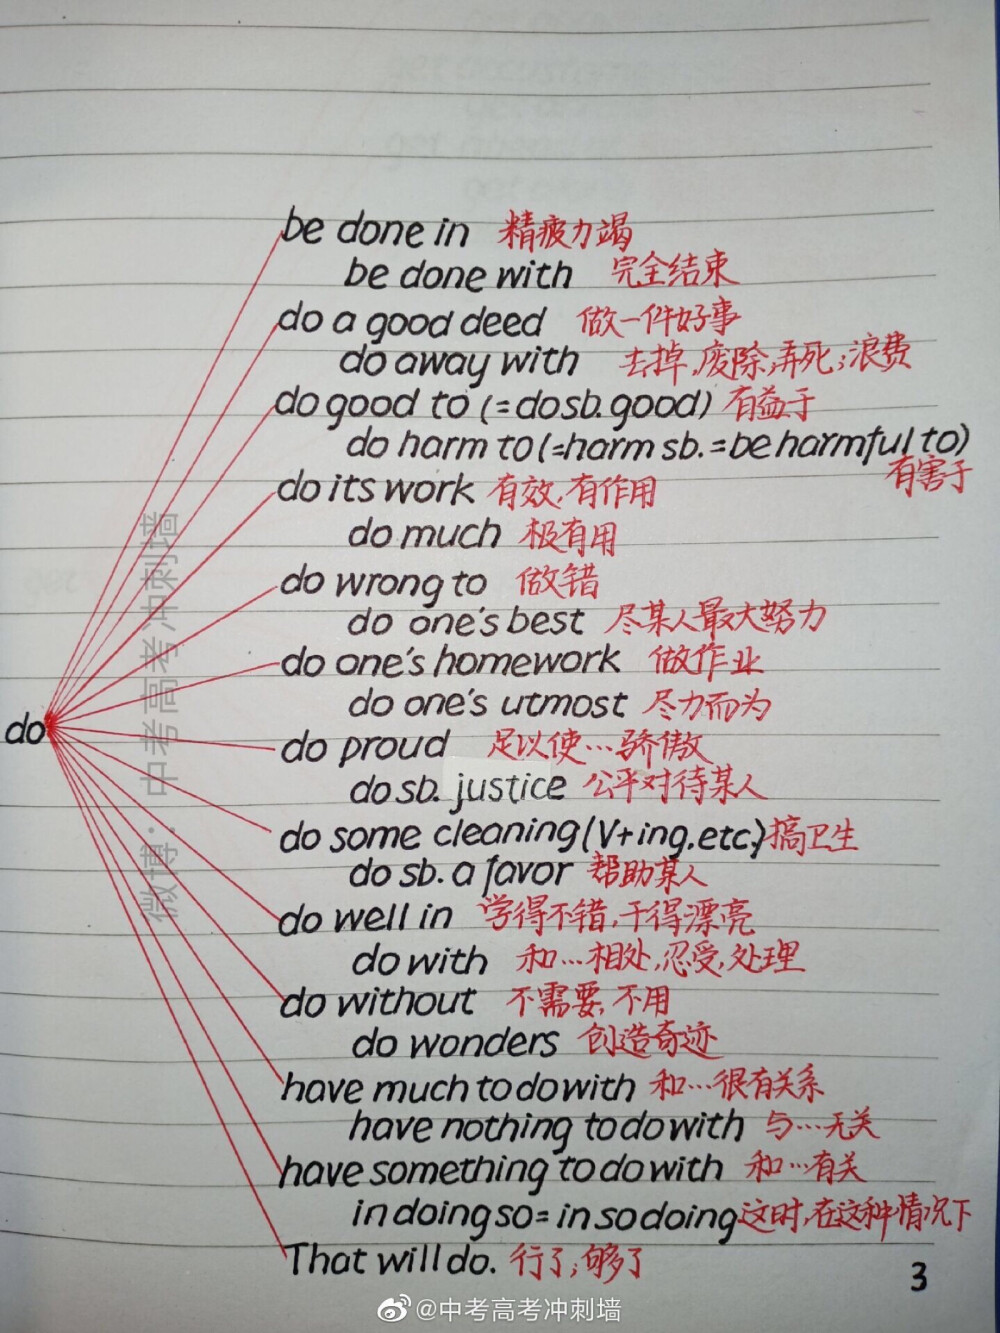 be done in 精疲力竭
be done with 完全结束
do a good deed 做一件好事
do away with 去掉,废除,弄死;浪费
do good to (=do sb. good) 有益于
do harm to (=harm sb.=be harmful to)
有害于
do its work 有效,有作用
do much 极有用
do wrong to 做错
do one's best 尽某人最大努力
do one's homework 做作业
do one's utmost 尽力而为
do
do proud 足以使…骄傲
do sb. justice 公平对待某人
do some cleaning (V+ing.etc.) 搞卫生
do sb. a favor 帮助某人
do well in 学得不错,干得漂亮
do with 和…相处,忍受,处理
do without 不需要,不用
do wonders 创造奇迹
have much to do with 和…很有关系
have nothing to do with 与…无关
have something to do with 和…有关
in doing so = in so doing 这时,在这种情况下
That will do. 行了;够了
3
微博：中考高考冲刺墙
@中考高考冲刺墙